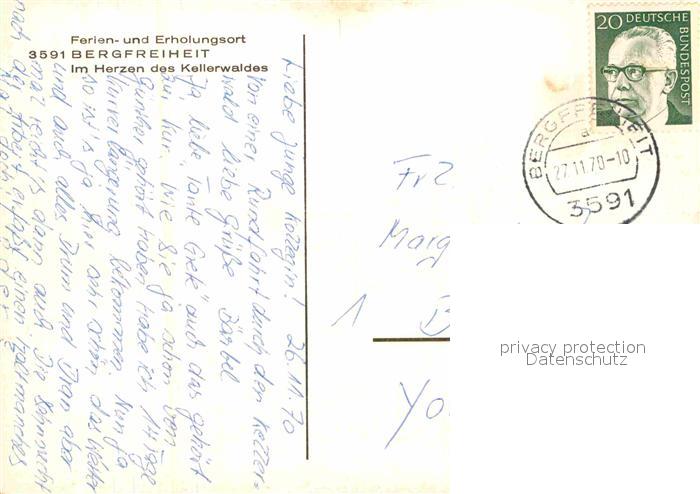 Ferien- und Erholungsort
3591 BERGFREIHEIT
Im Herzen des Kellerwaldes
Liebe junge Kollegin! 26.11.70
Von einer Rundfahrt durch den Keller=
wald liebe Grüße Bärbel.
Ja liebe "Tante Grete" auch das gehört
zur Kur. Wie Sie ja schon von
Günther gehört haben, habe ich 14 Tage
Verlängerung bekommen. Nun ja
so ist ja hier sehr schön, das Wetter
und auch alles Drum und Dran aber
mal reicht es dann auch. Die Sehnsucht
nach der Arbeit erfasst einen
20 DEUTSCHE
BUNDESPOST
BERGFREIHEIT
a
27.11.70-10
3591
Frl.
Marg
1 B
Yo
privacy protection
Datenschutz